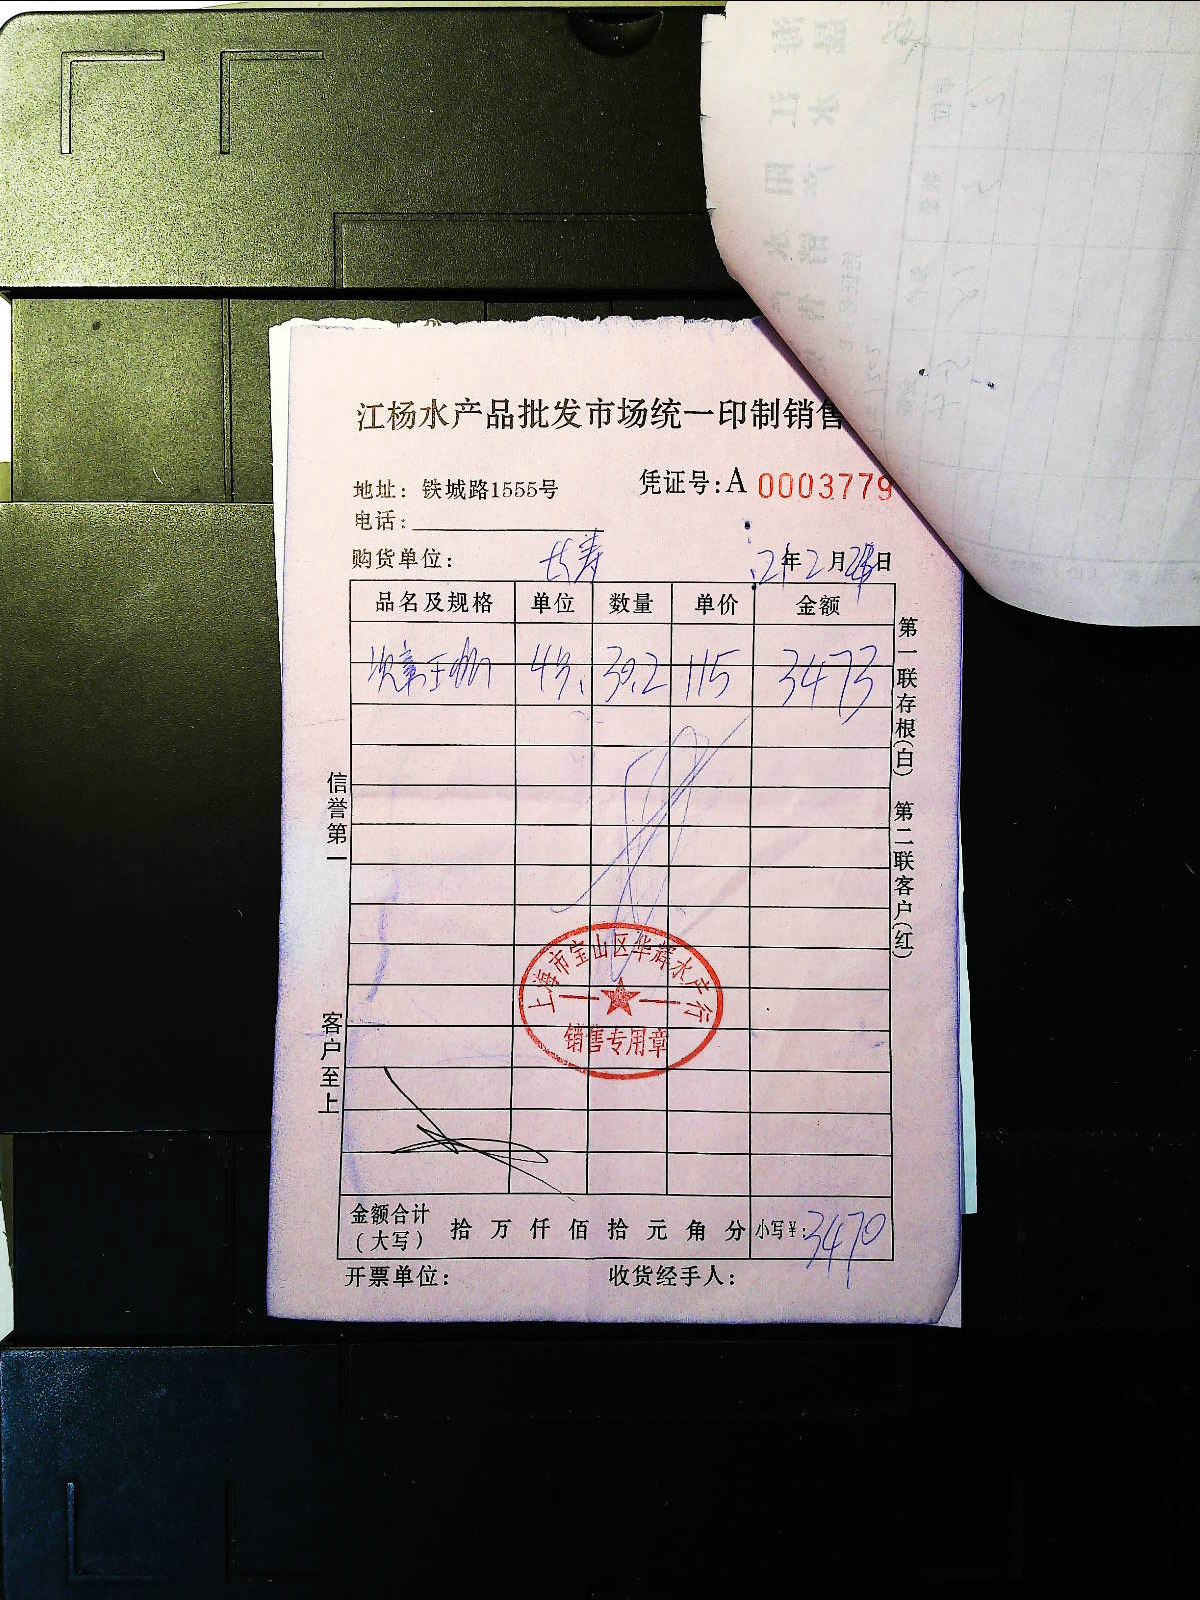 江杨水产品批发市场统一印制销售
地址：铁城路1555号
凭证号：A 0003779
电话：
购货单位：长寿
21年2月 日
品名及规格 单位 数量 单价 金额
4只 30.2 115 3473
信誉第一
客户至上
第一联存根（白） 第二联客户（红）
上海市宝山区华辉水产行
销售专用章
金额合计（大写） 拾 万 仟 佰 拾 元 角 分 小写￥：3470
开票单位： 收货经手人：